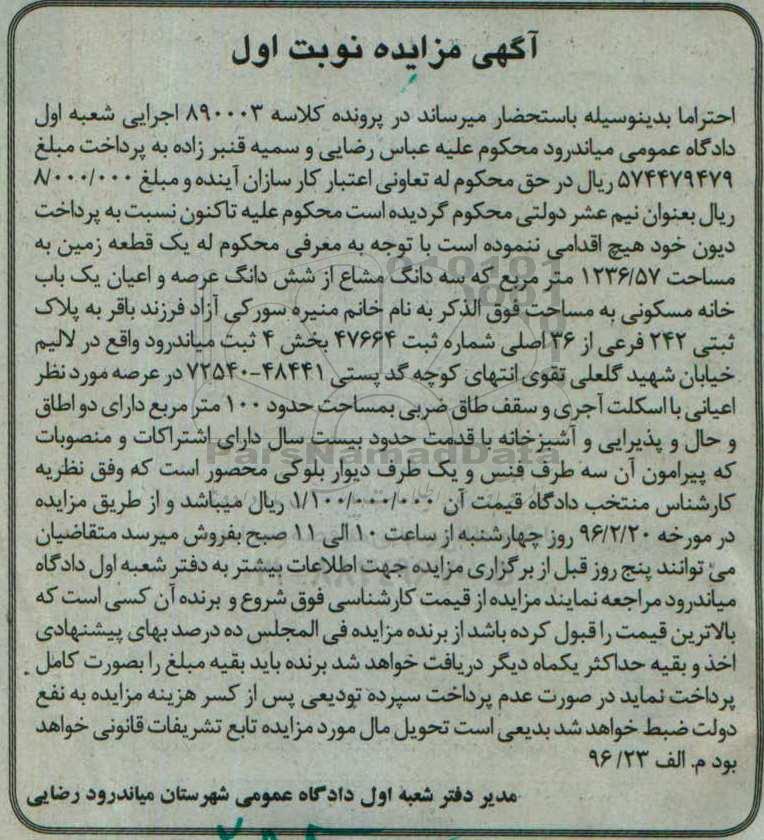 آگهی مزایده نوبت اول
احتراما بدینوسیله باستحضار میرساند در پرونده کلاسه ۸۹۰۰۰۳ اجرایی شعبه اول
دادگاه عمومی میاندرود محکوم علیه عباس رضایی و سمیه قنبر زاده به پرداخت مبلغ
۵۷۴۴۷۹۴۷۹ ریال در حق محکوم له تعاونی اعتبار کار سازان آینده و مبلغ ۸/۰۰۰/۰۰۰
ریال بعنوان نیم عشر دولتی محکوم گردیده است محکوم علیه تاکنون نسبت به پرداخت
دیون خود هیچ اقدامی ننموده است با توجه به معرفی محکوم له یک قطعه زمین به
مساحت ۱۲۳۶/۵۷ متر مربع که سه دانگ مشاع از شش دانگ عرصه و اعیان یک باب
خانه مسکونی به مساحت فوق الذکر به نام خانم منیره سورکی آزاد فرزند باقر به پلاک
ثبتی ۲۴۲ فرعی از ۳۶ اصلی شماره ثبت ۴۷۶۶۴ بخش ۴ ثبت میاندرود واقع در لالیم
خیابان شهید گلعلی تقوی انتهای کوچه گد پستی ۴۸۴۴۱-۷۲۵۴۰ در عرصه مورد نظر
اعیانی با اسکلت آجری و سقف طاق ضربی بمساحت حدود ۱۰۰ متر مربع دارای دو اطاق
و حال و پذیرایی و آشپزخانه با قدمت حدود بیست سال دارای اشتراکات و منصوبات
که پیرامون آن سه طرف فنس و یک طرف دیوار بلوکی محصور است که وفق نظریه
کارشناس منتخب دادگاه قیمت آن ۱/۱۰۰/۰۰۰/۰۰۰ ریال میباشد و از طریق مزایده
در مورخه ۹۶/۲/۲۰ روز چهارشنبه از ساعت ۱۰ الی ۱۱ صبح بفروش میرسد متقاضیان
می توانند پنج روز قبل از برگزاری مزایده جهت اطلاعات بیشتر به دفتر شعبه اول دادگاه
میاندرود مراجعه نمایند مزایده از قیمت کارشناسی فوق شروع و برنده آن کسی است که
بالاترین قیمت را قبول کرده باشد از برنده مزایده فی المجلس ده درصد بهای پیشنهادی
اخذ و بقیه حداکثر یکماه دیگر دریافت خواهد شد برنده باید بقیه مبلغ را بصورت کامل
پرداخت نماید در صورت عدم پرداخت سپرده تودیعی پس از کسر هزینه مزایده به نفع
دولت ضبط خواهد شد بدیعی است تحویل مال مورد مزایده تابع تشریفات قانونی خواهد
بود م. الف ۹۶/۲۳
مدیر دفتر شعبه اول دادگاه عمومی شهرستان میاندرود رضایی
ParsNamadData